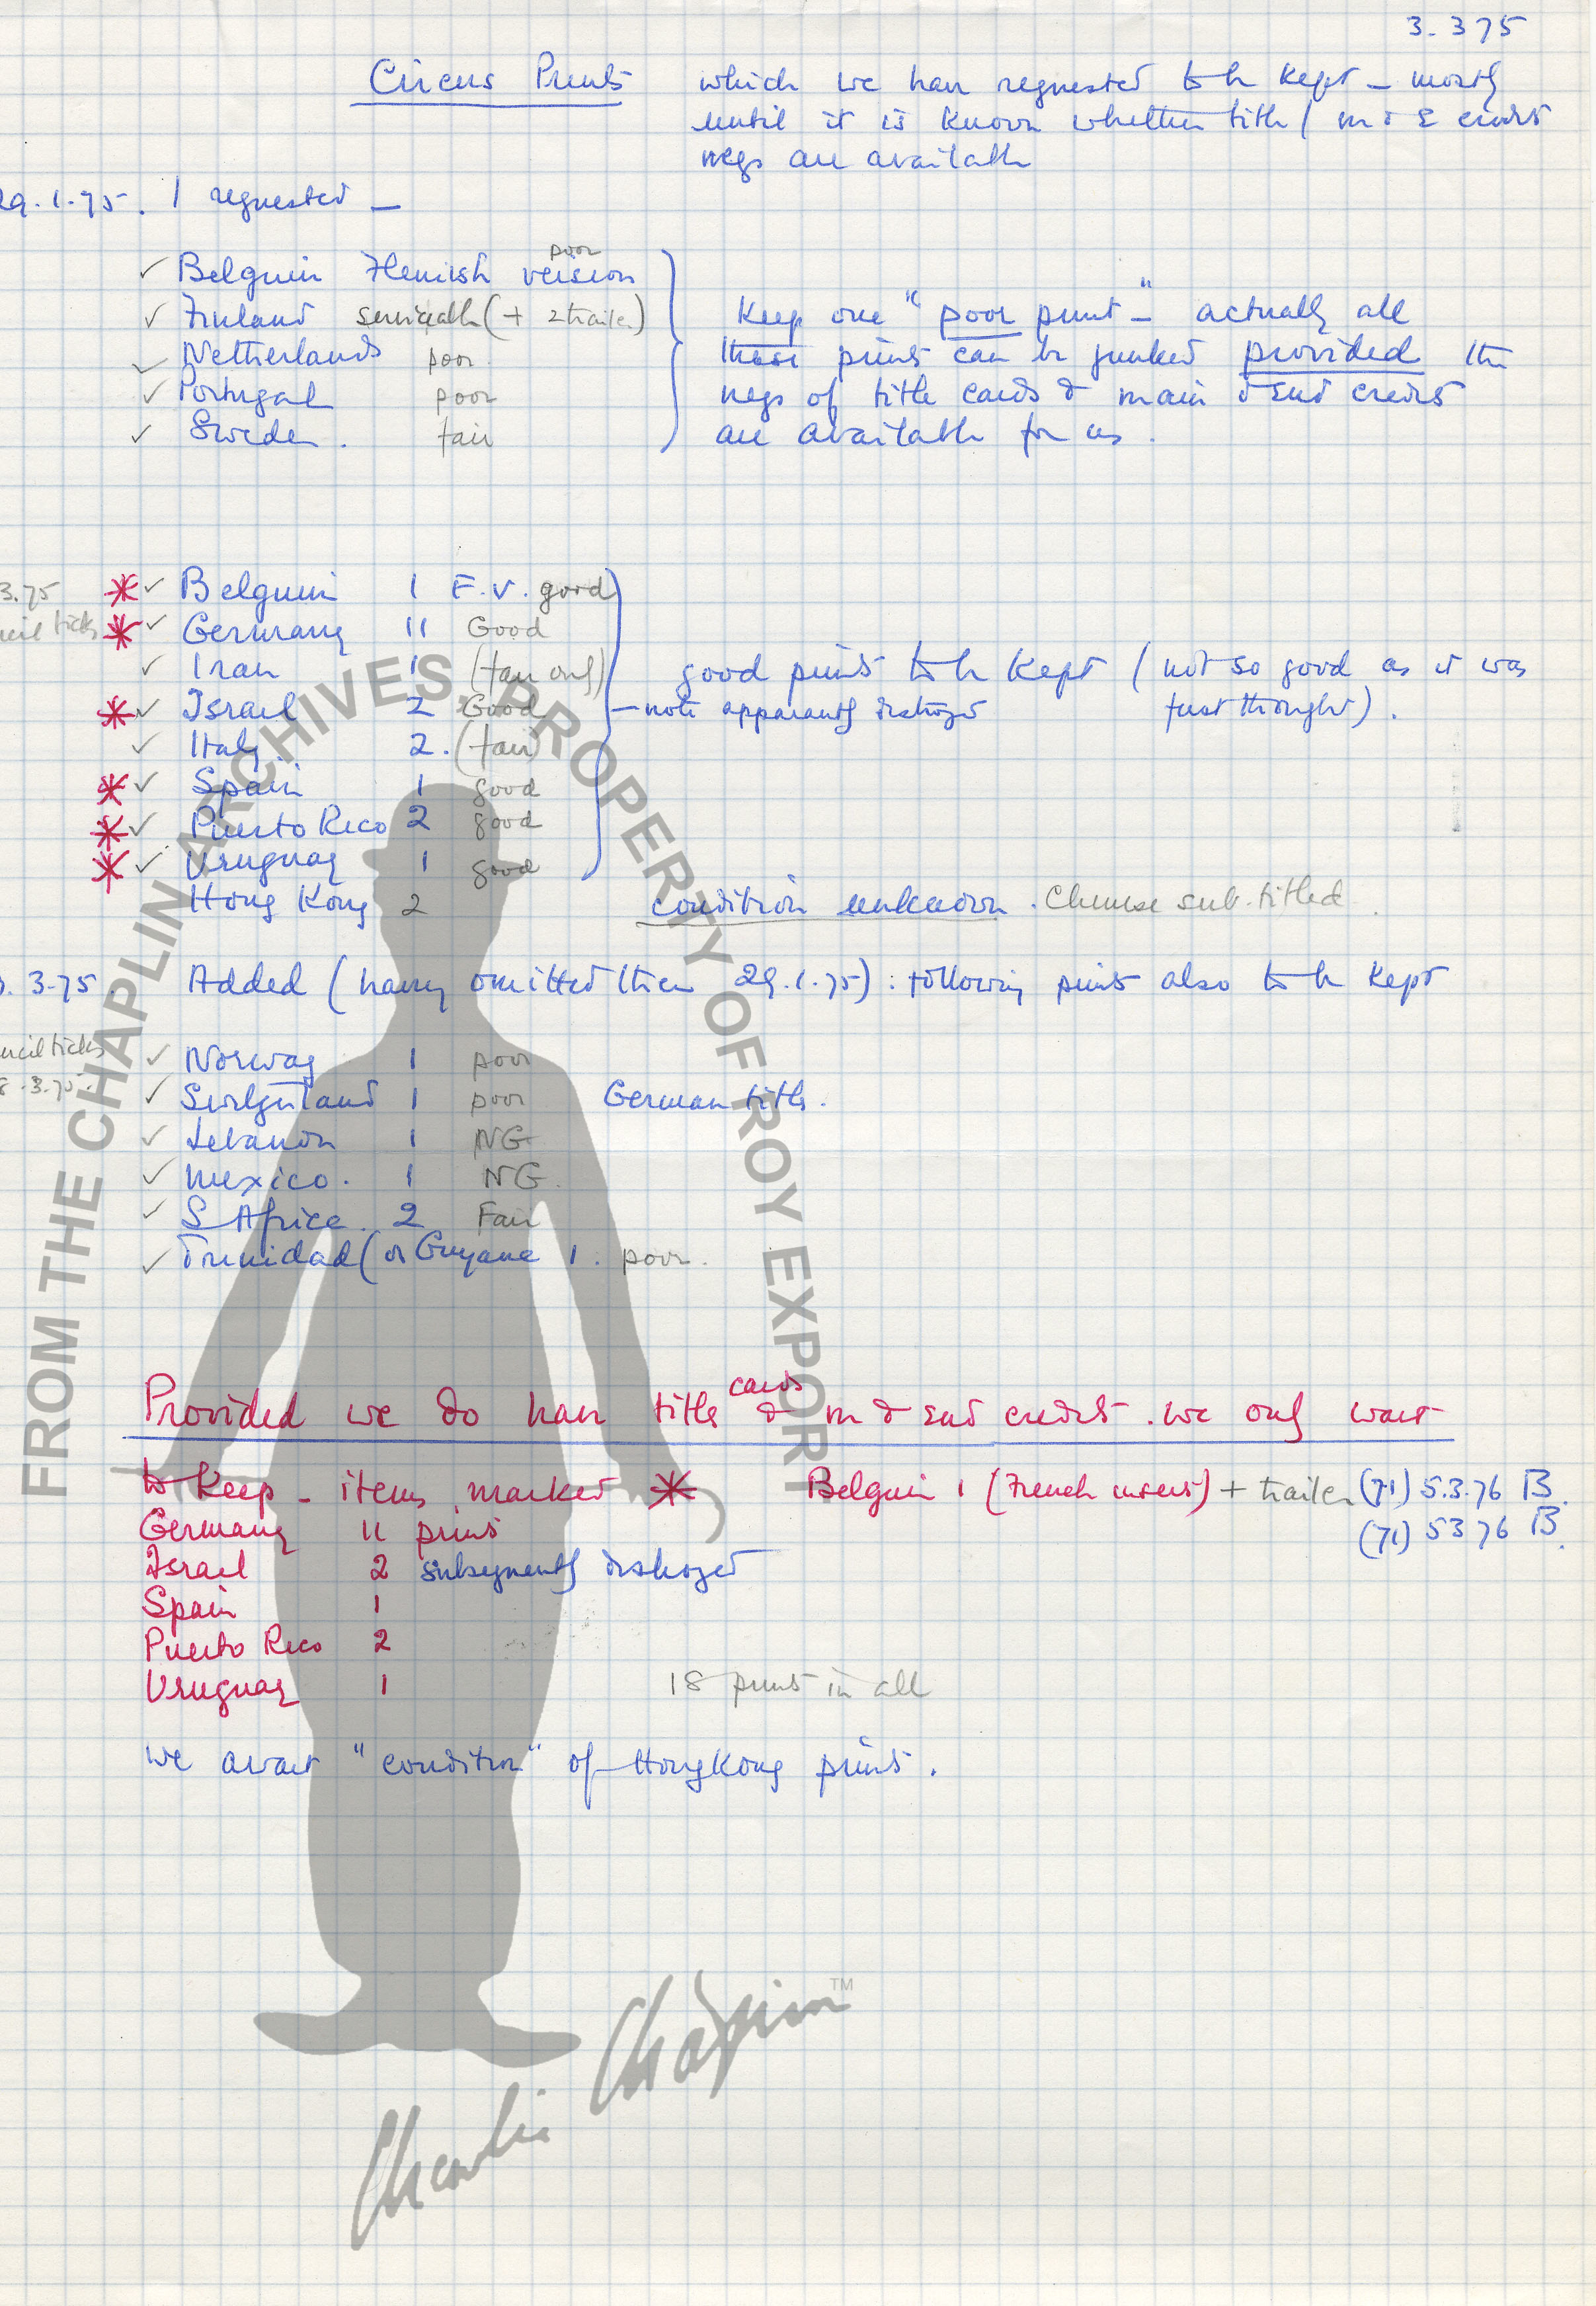 3.375
Circus Prints which we have requested to be kept - mostly
until it is known whether title / m & E credit
negs are available
29.1.75. I requested -
✓ Belguim Flemish version poor
✓ Finland serviceable (+ 2 trailer)
✓ Netherlands poor
✓ Portugal poor
✓ Sweden. fair
Keep one "poor print-" actually all
these prints can be junked provided the
negs of title cards & main & end credits
are available for us.
3.75 * ✓ Belguim 1 F.V. good
ticks * ✓ Germany 11 Good
✓ Iran 1 (fair only)
* ✓ Israel 2 Good - note apparently destroyed
✓ Italy 2. (fair)
* ✓ Spain 1 good
* ✓ Puerto Rico 2 good
* ✓ Uruguay 1 good
good prints to be kept (not so good as it was
first thought).
Hong Kong 2 condition unknown. Chinese sub-titled.
3.75. Added (having omitted them 29.1.75): following prints also to be kept
ticks ✓ Norway 1 poor
3.75. ✓ Switzerland 1 poor German titles.
✓ Lebanon 1 NG
✓ Mexico. 1 NG.
✓ S Africa. 2 Fair
✓ Trinidad (or Guyana 1. poor.
Provided we do have title cards & m & end credits. we only want
to keep - items marked * Belguim 1 (French insert) + trailer (71) 5.3.76 B.
Germany 11 prints (71) 5 3 76 B.
Israel 2 subsequently destroyed
Spain 1
Puerto Rico 2
Uruguay 1 18 prints in all
We await "condition" of HongKong prints.
FROM THE CHAPLIN ARCHIVES, PROPERTY OF ROY EXPORT
Charlie Chaplin™